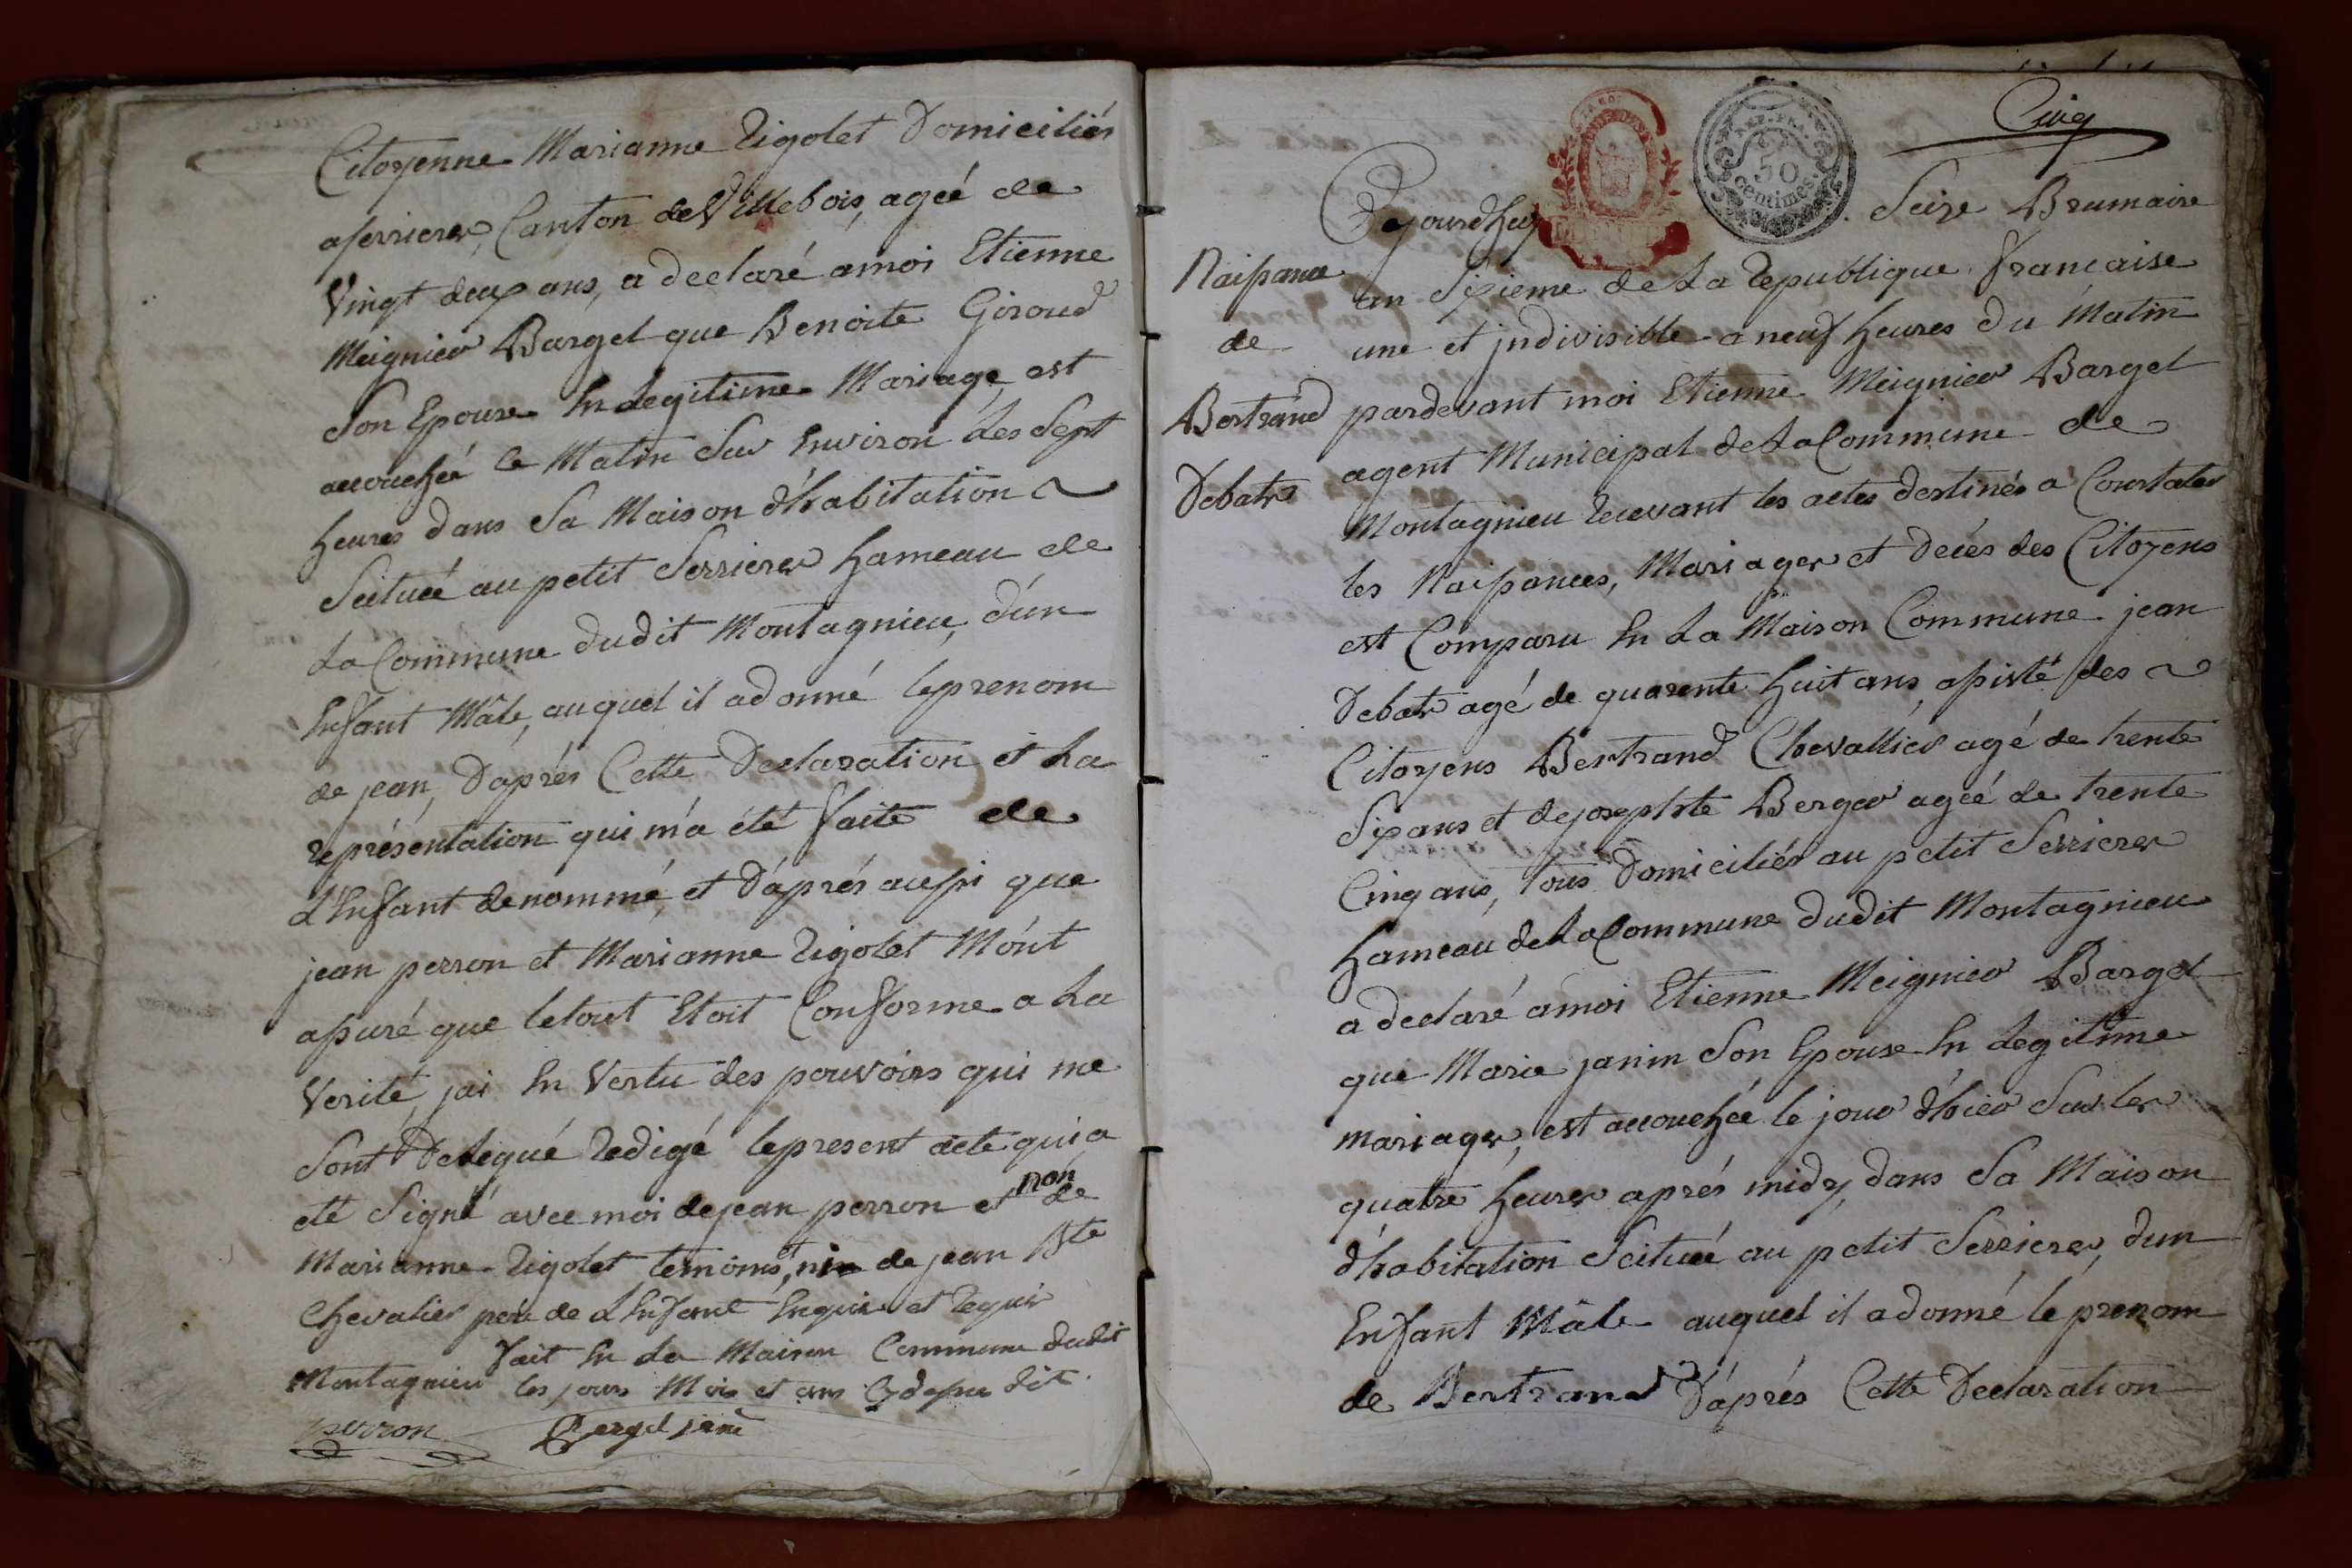 Citoyenne Marianne Rigolet Domiciliés
aserrieres, Canton de Villebois, ageé de
Vingt deux ans, a declaré amoi Etienne
Meignier Bargel que Benoite Giroud
Son Epouse En Legitime Mariage, est
accouchéé le Matin Sur Environ les Sept
heures dans Sa Maison d'habitation
Scituéé au petit Serrieres hameau de
La Commune dudit Montagnieu, d'un
Enfant Mâle, auquel il adonné leprenom
de jean, D'aprés Cette Declaration et La
représentation qui m'a été faite de
L'Enfant denommé, et D'aprés aussi que
jean perron et Marianne Rigolet M'ont
assuré que letout Etoit Conforme a La
Verité, jai En Vertu des pouvoirs qui me
Sont Delegué Redigé lepresent acte qui a
eté Signé avec moi dejean perron et non de
Marianne Rigolet temoins, ni de jean Bte
Chevalier pere de LEnfant Enquis et Requis
fait En La Maison Commune dudit
Montagnieu les jours Mois et ans Cydessus dit.
perron Bargel
Cinq
REP. FRA.
50
centimes.
Cejourd'huy Seize Brumaire
Naissance
an Sixieme de La Republique francaise
de
une et jndivisible a neuf heures du Matin
Bertrand
pardevant moi Etienne Meignier Bargel
Debatr
agent Municipal de La Commune de
Montagnieu Recevant les actes destinés a Constater
les Naissances, Mariages et Décés des Citoyens
est Comparu En La Maison Commune jean
Debatr agé de quarente huit ans, assisté des
Citoyens Bertrand Chevallier agé de trente
Six ans et dejosephte Berger agéé de trente
Cinq ans, tous Domiciliés au petit Serrieres
hameau de La Commune dudit Montagnieu
a declaré amoi Etienne Meignier Bargel
que Marie janin Son Epouse En Legitime
mariages, est accouchéé le jour d'hier Sur les
quatre heures aprés midy, dans Sa Maison
d'habitation Scituéé au petit Serrieres, dun
Enfant Mâle auquel il adonné le prenom
de Bertrand D'áprés Cette Declaration